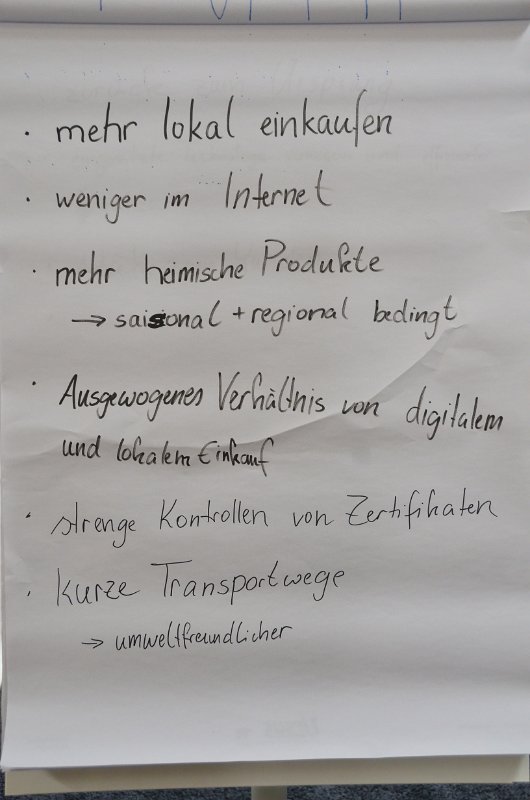 · mehr lokal einkaufen
· weniger im Internet
· mehr heimische Produkte
→ saisonal + regional bedingt
· Ausgewogenes Verhältnis von digitalem
und lokalem Einkauf
· strenge Kontrollen von Zertifikaten
· kurze Transportwege
→ umweltfreundlicher